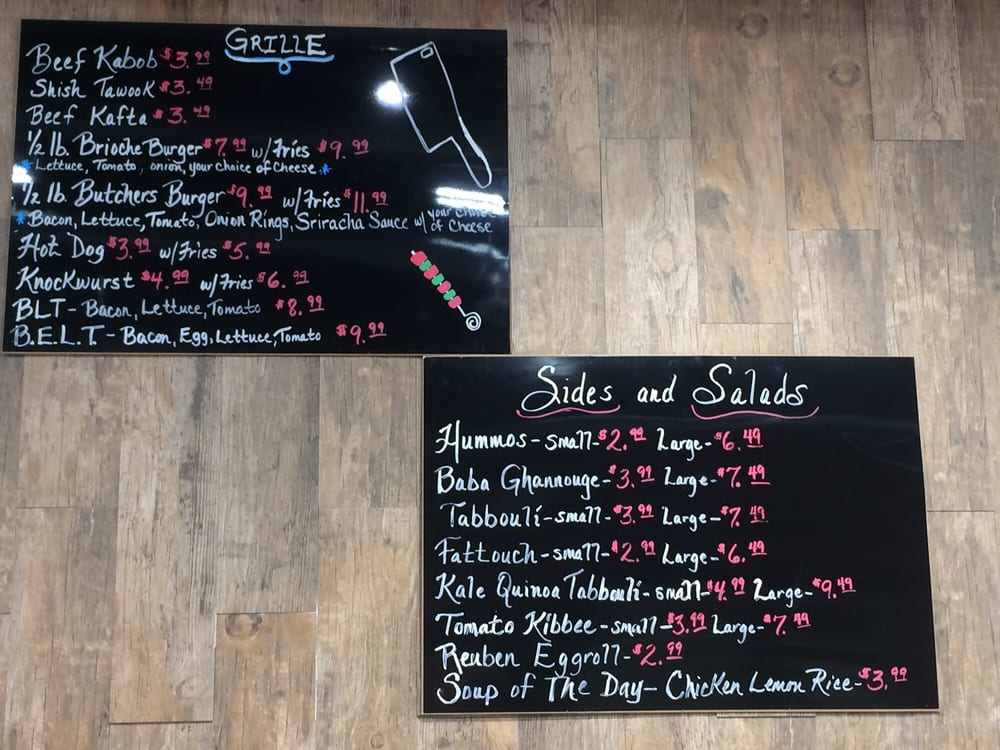 GRILLE
Beef Kabob $3.99
Shish Tawook $3.49
Beef Kafta $3.49
1/2 lb. Brioche Burger $7.99 w/Fries $9.99
*Lettuce, Tomato, onion, your choice of Cheese.*
1/2 lb. Butchers Burger $9.99 w/Fries $11.99
*Bacon, Lettuce, Tomato, Onion Rings, Sriracha Sauce w/ your choice of Cheese
Hot Dog $3.99 w/Fries $5.99
Knockwurst $4.99 w/Fries $6.99
BLT - Bacon, Lettuce, Tomato $8.99
B.E.L.T - Bacon, Egg, Lettuce, Tomato $9.99
Sides and Salads
Hummos - small - $2.99 Large - $6.49
Baba Ghannouge - $3.99 Large - $7.49
Tabbouli - small - $3.99 Large - $7.49
Fattouch - small - $2.99 Large - $6.49
Kale Quinoa Tabbouli - small - $4.99 Large - $9.49
Tomato Kibbee - small - $3.99 Large - $7.49
Reuben Eggroll - $2.99
Soup of The Day - Chicken Lemon Rice - $3.99